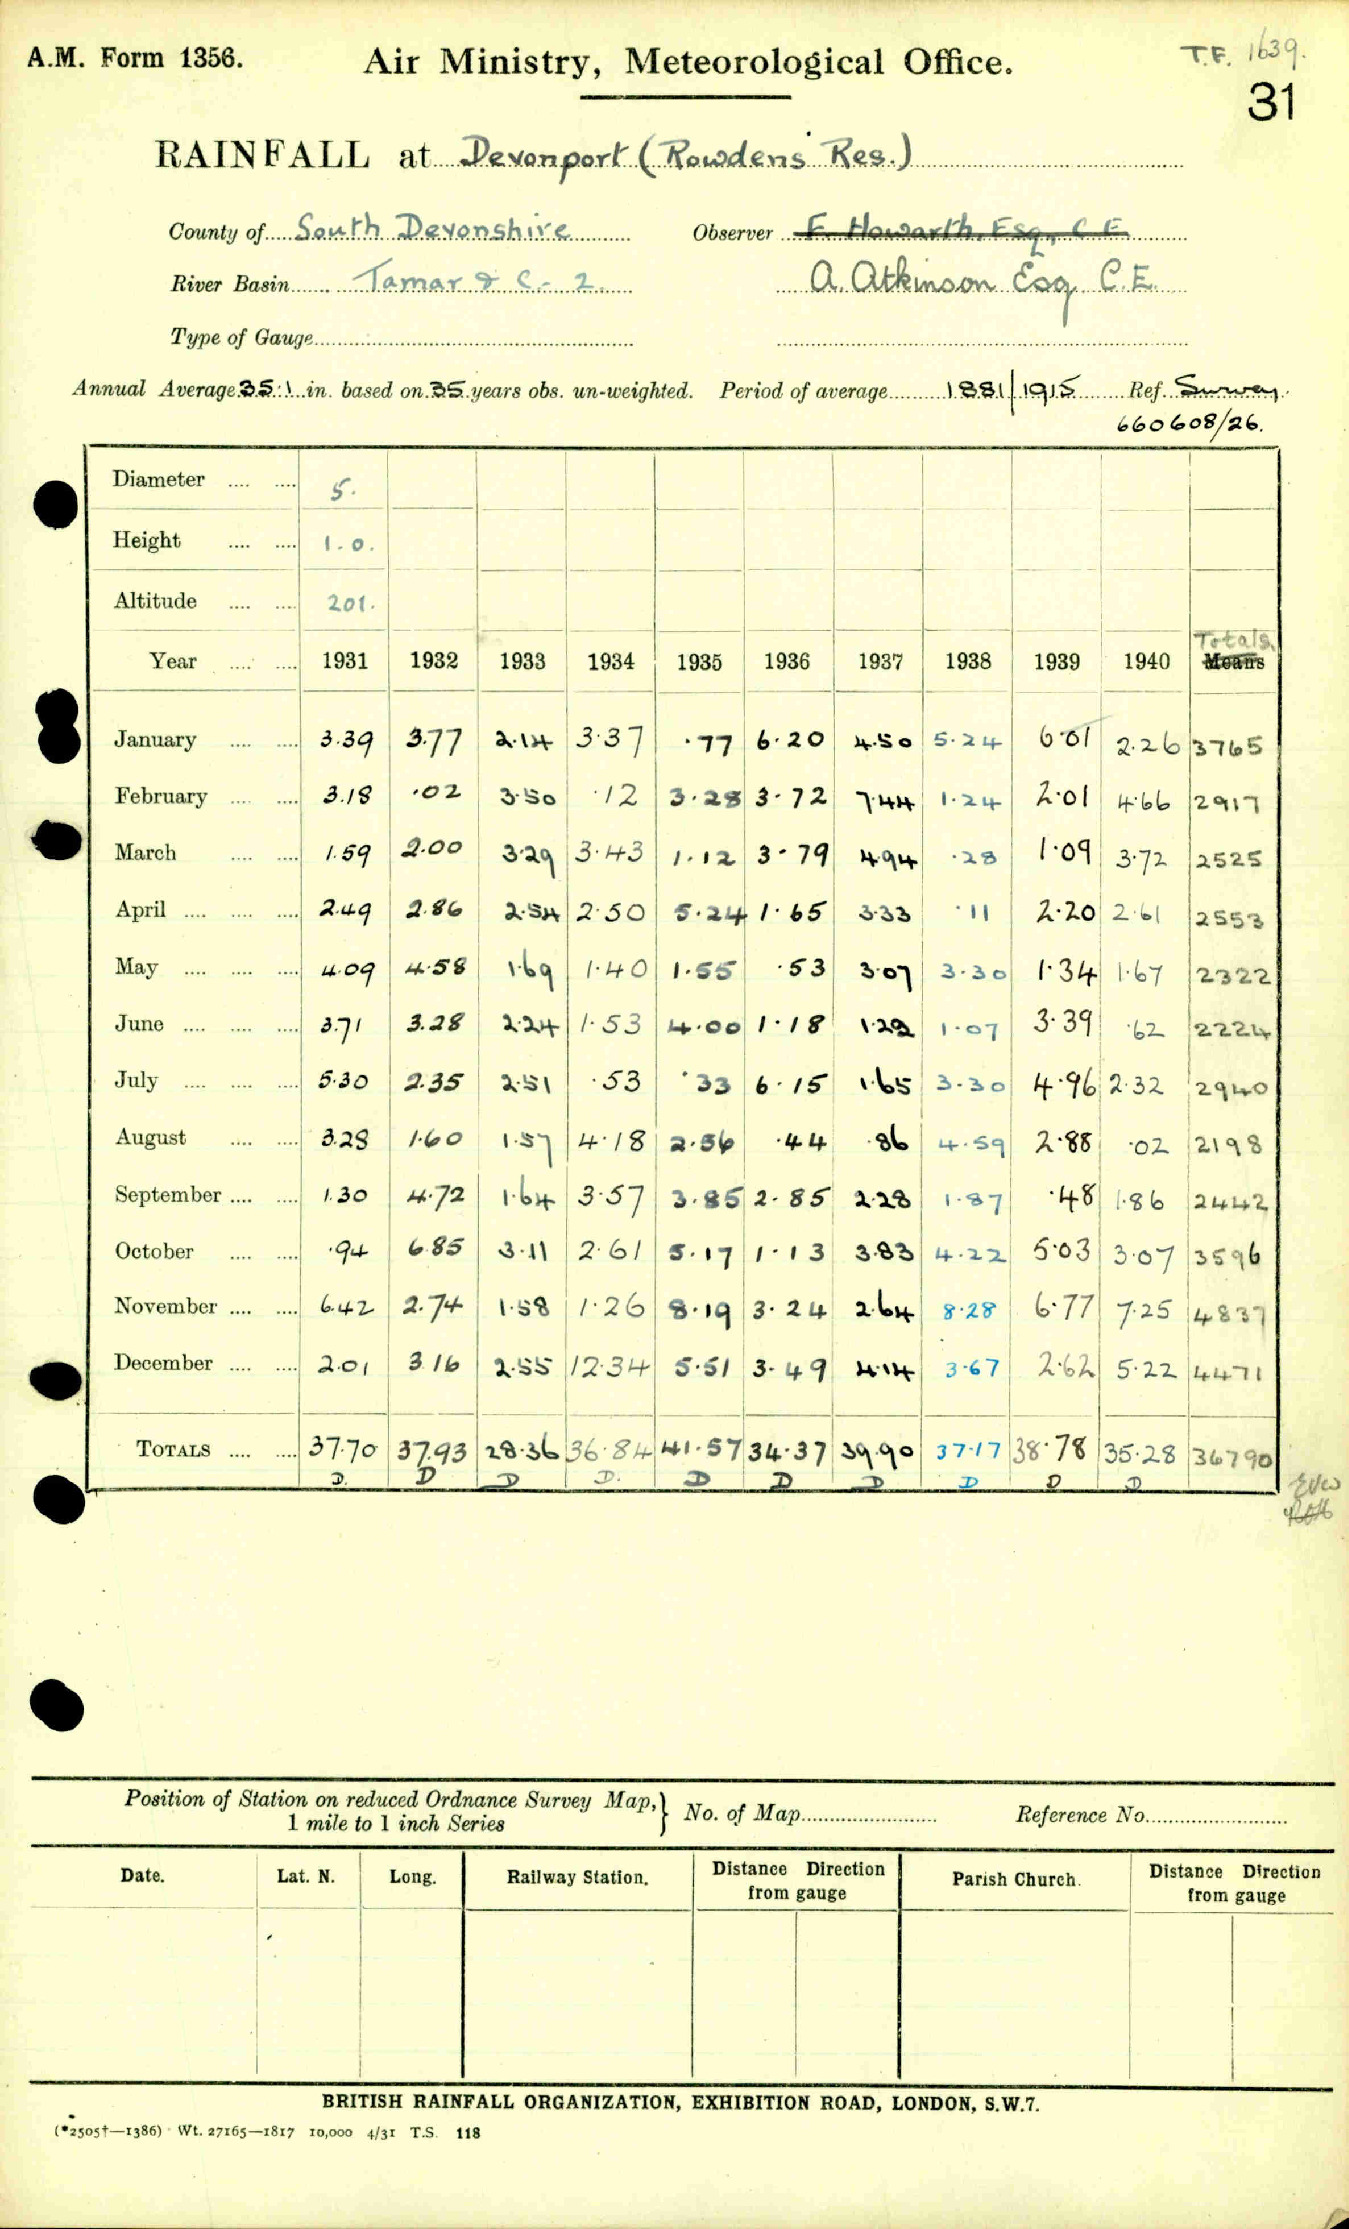 A.M. Form 1356. Air Ministry, Meteorological Office. T.F. 1639.
31
RAINFALL at Devonport (Rowdens Res.)
County of South Devonshire Observer F. Howarth, Esq., C.E.
River Basin Tamar & C - 2. A. Atkinson Esq C.E.
Type of Gauge
Annual Average 35.1 in. based on 35 years obs. un-weighted. Period of average 1881/1915 Ref. Survey
660608/26.
Diameter 5.
Height 1.0.
Altitude 201.
Totals
Year 1931 1932 1933 1934 1935 1936 1937 1938 1939 1940 Means
January 3.39 3.77 2.14 3.37 .77 6.20 4.50 5.24 6.01 2.26 3765
February 3.18 .02 3.50 .12 3.28 3.72 7.44 1.24 2.01 4.66 2917
March 1.59 2.00 3.29 3.43 1.12 3.79 4.94 .28 1.09 3.72 2525
April 2.49 2.86 2.54 2.50 5.24 1.65 3.33 .11 2.20 2.61 2553
May 4.09 4.58 1.69 1.40 1.55 .53 3.07 3.30 1.34 1.67 2322
June 3.71 3.28 2.24 1.53 4.00 1.18 1.22 1.07 3.39 .62 2224
July 5.30 2.35 2.51 .53 .33 6.15 1.65 3.30 4.96 2.32 2940
August 3.28 1.60 1.57 4.18 2.56 .44 .86 4.59 2.88 .02 2198
September 1.30 4.72 1.64 3.57 3.85 2.85 2.28 1.87 .48 1.86 2442
October .94 6.85 3.11 2.61 5.17 1.13 3.83 4.22 5.03 3.07 3596
November 6.42 2.74 1.58 1.26 8.19 3.24 2.64 8.28 6.77 7.25 4837
December 2.01 3.16 2.55 12.34 5.51 3.49 4.14 3.67 2.62 5.22 4471
TOTALS 37.70 37.93 28.36 36.84 41.57 34.37 39.90 37.17 38.78 35.28 36790
D. D D D. D D D D D D
Position of Station on reduced Ordnance Survey Map,} No. of Map Reference No.
1 mile to 1 inch Series
Date. Lat. N. Long. Railway Station. Distance Direction Parish Church. Distance Direction
from gauge from gauge
BRITISH RAINFALL ORGANIZATION, EXHIBITION ROAD, LONDON, S.W.7.
(*2505†—1386) Wt. 27165—1817 10,000 4/31 T.S. 118